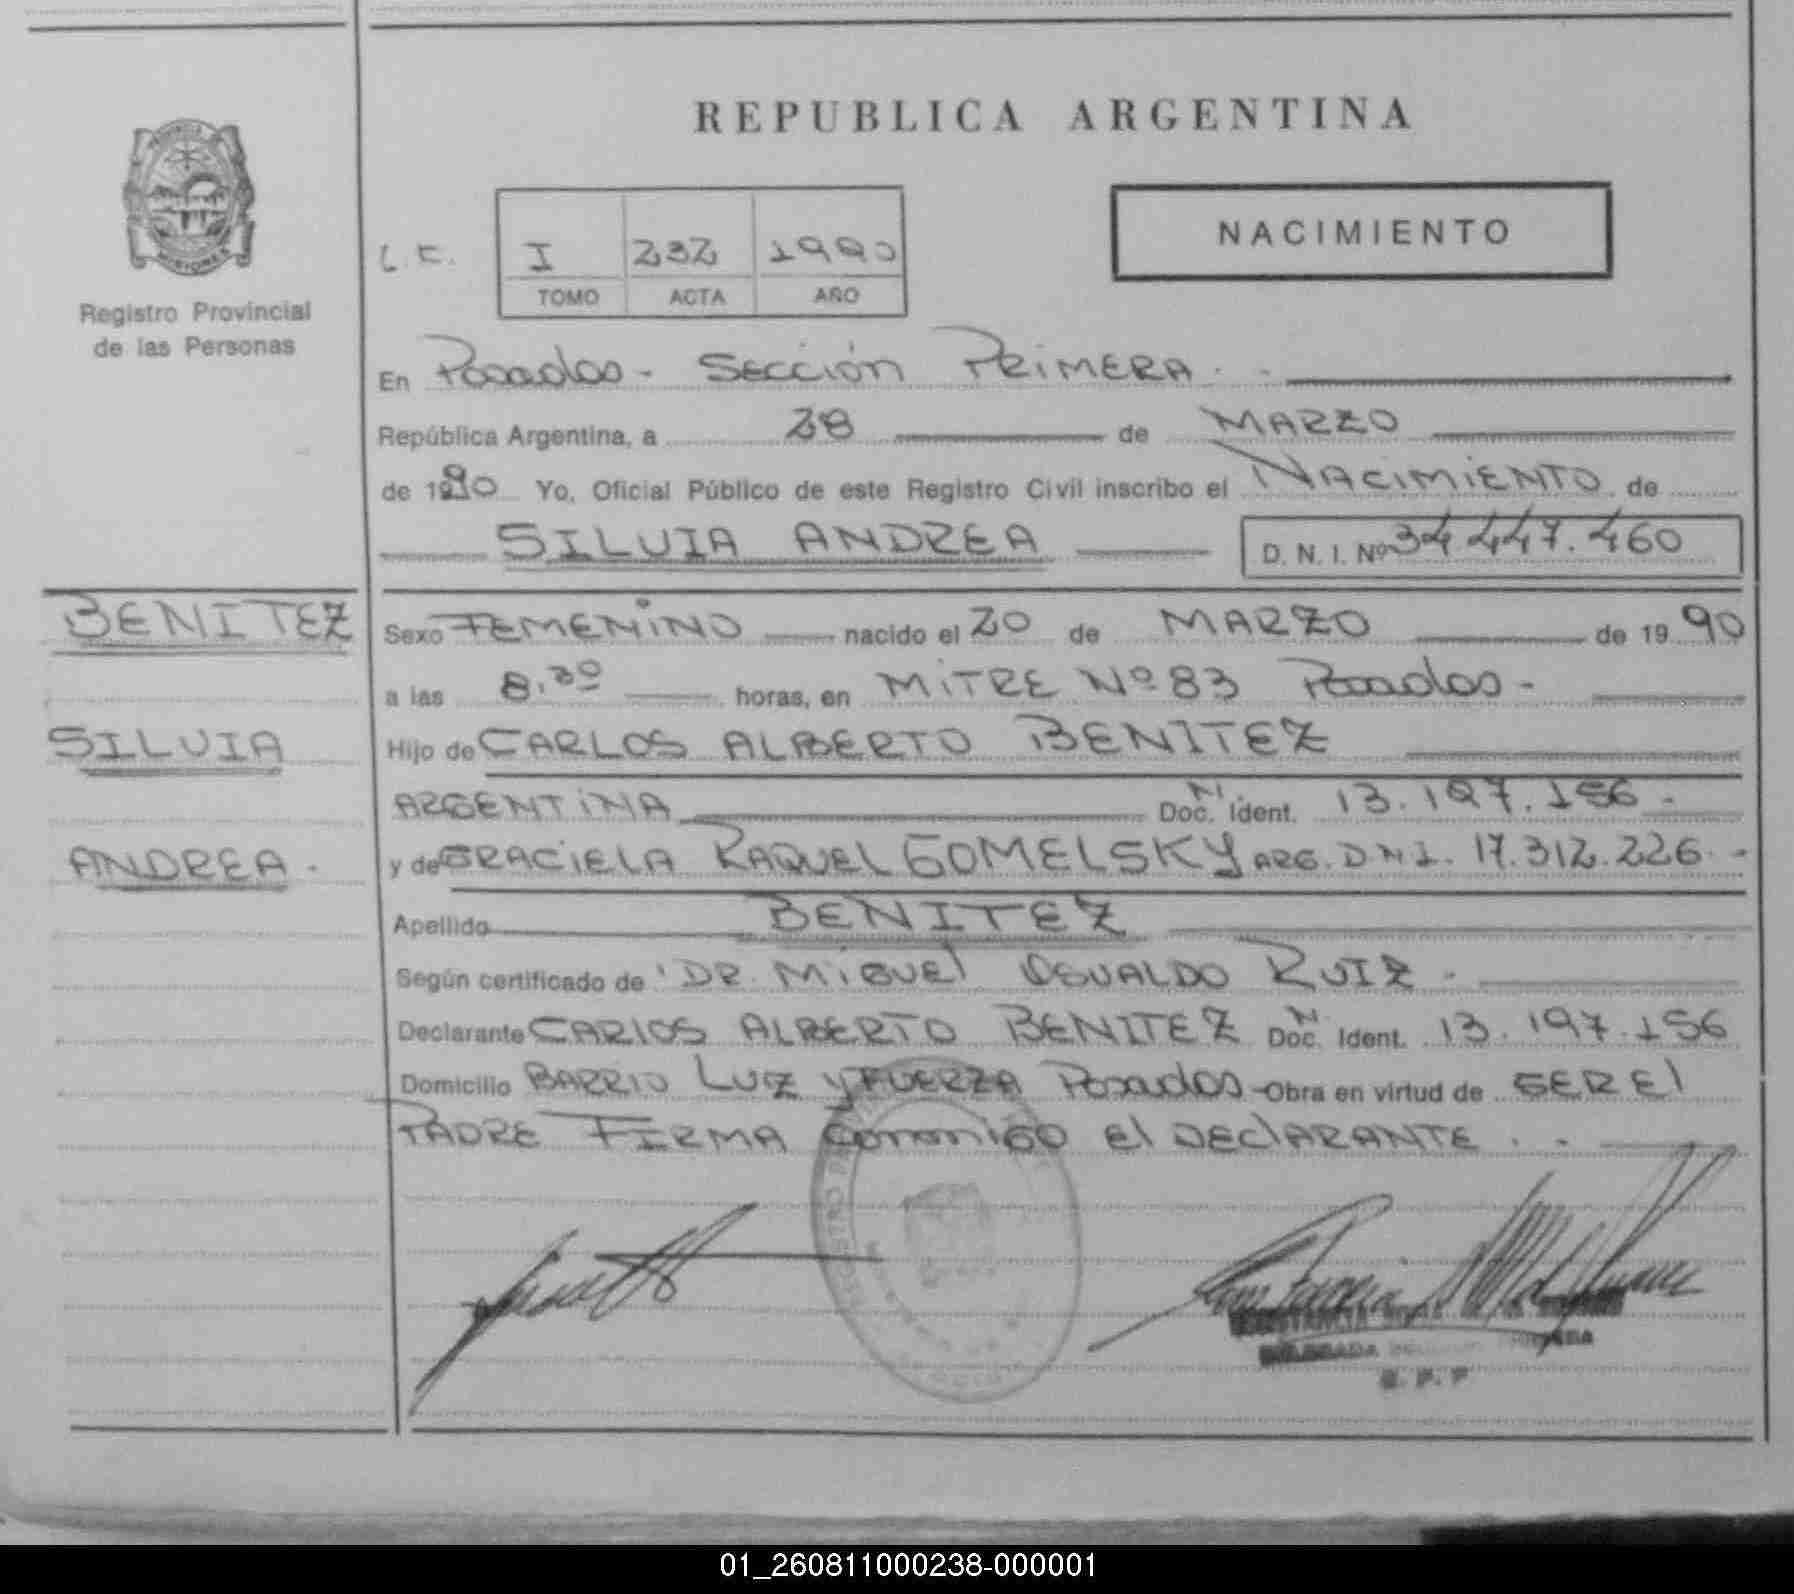 REPUBLICA ARGENTINA
MISIONES
Registro Provincial
de las Personas
NACIMIENTO
L.C. I 232 1990
TOMO ACTA AÑO
En Posadas - SECCIÓN PRIMERA
República Argentina, a 28 de MARZO
de 1990 Yo, Oficial Público de este Registro Civil inscribo el NACIMIENTO de
SILVIA ANDREA D. N. I. Nº 34.447.460
BENITEZ
SILVIA
ANDREA.
Sexo FEMENINO nacido el 20 de MARZO de 19 90
a las 8,30 horas, en MITRE Nº 83 Posadas -
Hijo de CARLOS ALBERTO BENITEZ
ARGENTINA Doc. N. Ident. 13.197.156 -
y de GRACIELA RAQUEL GOMELSKY ARG. D.N.I. 17.312.226 -
Apellido BENITEZ
Según certificado de DR. MIGUEL OSVALDO RUIZ -
Declarante CARLOS ALBERTO BENITEZ Doc. N. Ident. 13.197.156
Domicilio BARRIO LUZ y FUERZA Posadas - Obra en virtud de SER El
PADRE FIRMA Conmigo El DEClARANTE . -
DELEGADA
01_260811000238-000001